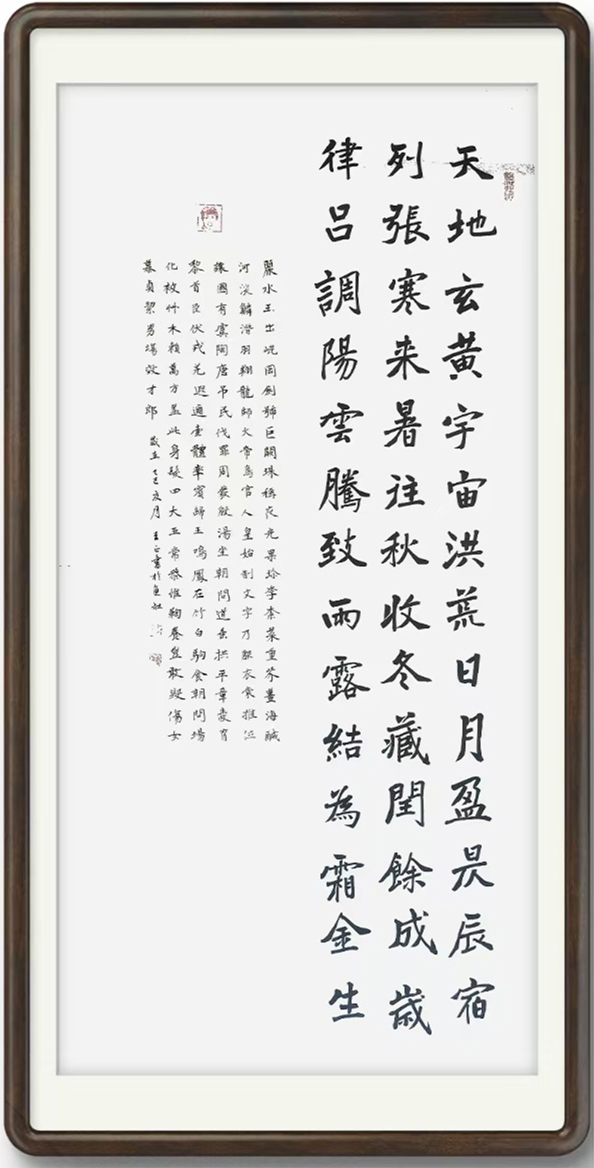 天地玄黃宇宙洪荒日月盈昃辰宿
列張寒来暑往秋收冬藏閏餘成歲
律呂調陽雲騰致雨露結為霜金生
麗水玉出崐岡劍號巨闕珠稱夜光果珍李柰菜重芥薑海鹹
河淡鱗潛羽翔龍師火帝鳥官人皇始制文字乃服衣裳推位
讓國有虞陶唐吊民伐罪周發殷湯坐朝問道垂拱平章愛育
黎首臣伏戎羌遐邇壹體率賓歸王鳴鳳在竹白駒食朝問場
化被艸木賴萬方蓋此身髮四大五常恭惟鞠養豈敢毀傷女
慕貞絜男場效才郎 歲在乙巳夏月 王正書於